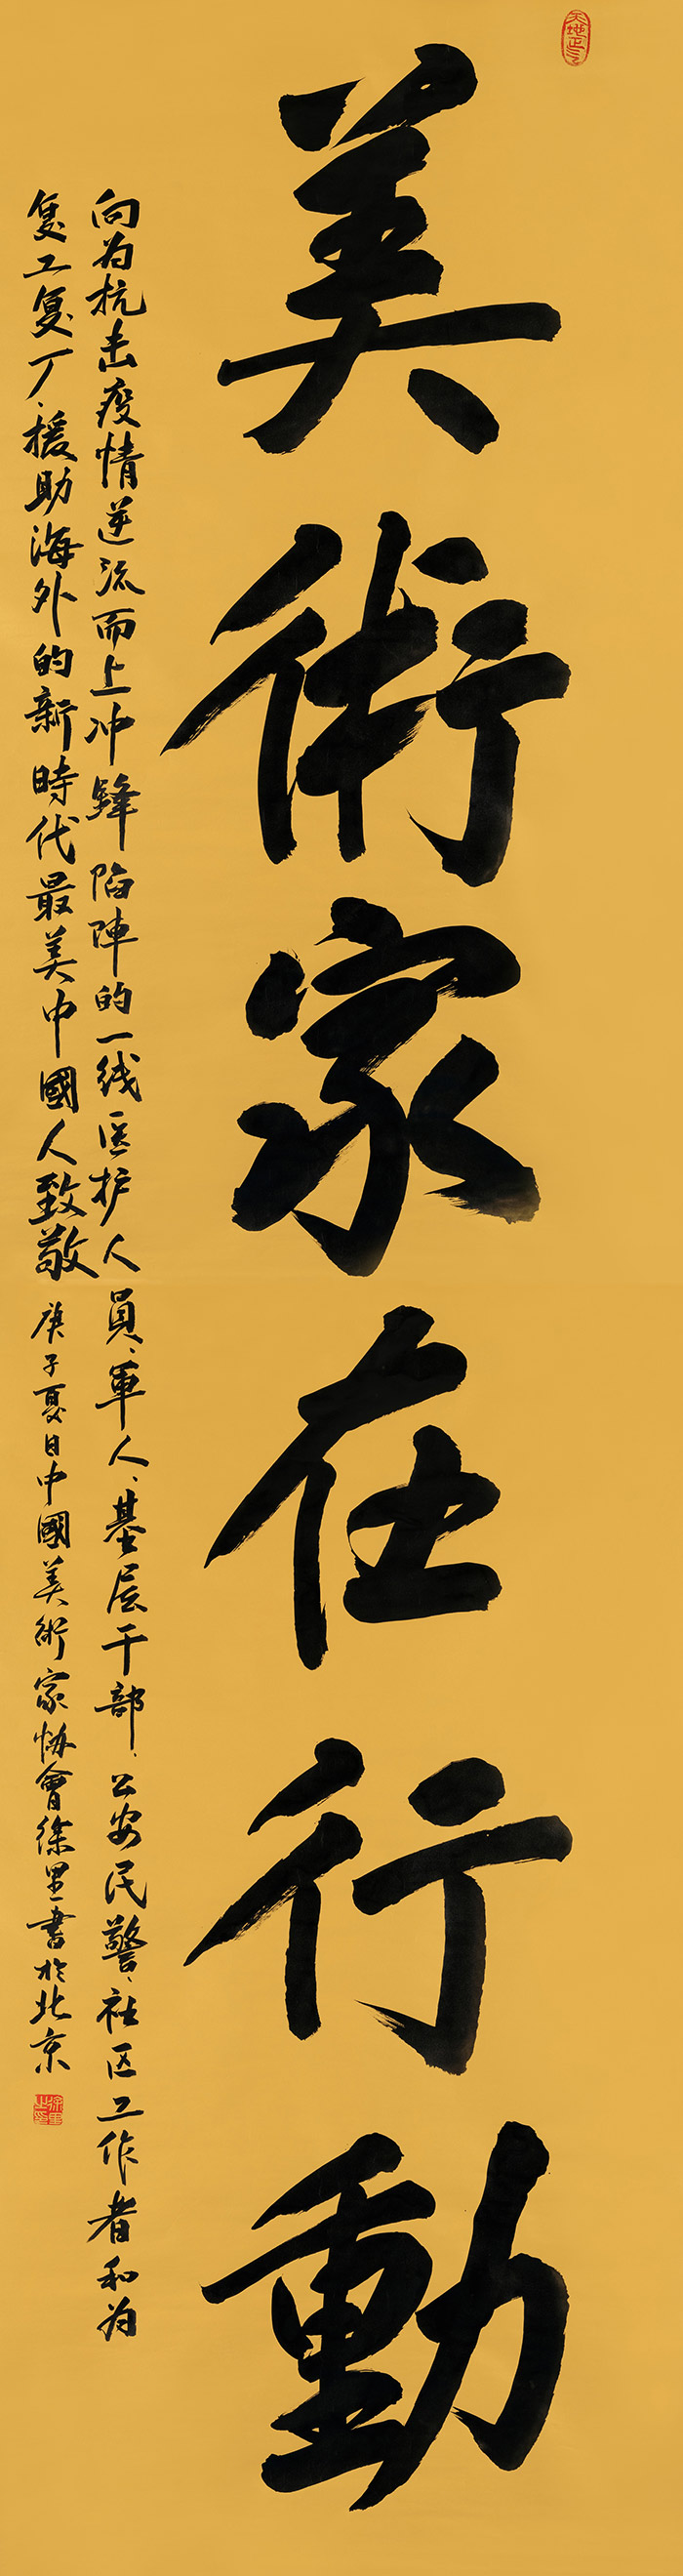 天地正气
美術家在行動
向为抗击疫情逆流而上冲鋒陷陣的一线医护人員、軍人、基层干部、公安民警、社区工作者和为
复工复厂、援助海外的新時代最美中國人致敬 庚子夏日中國美術家协會徐里書於北京
徐里之印